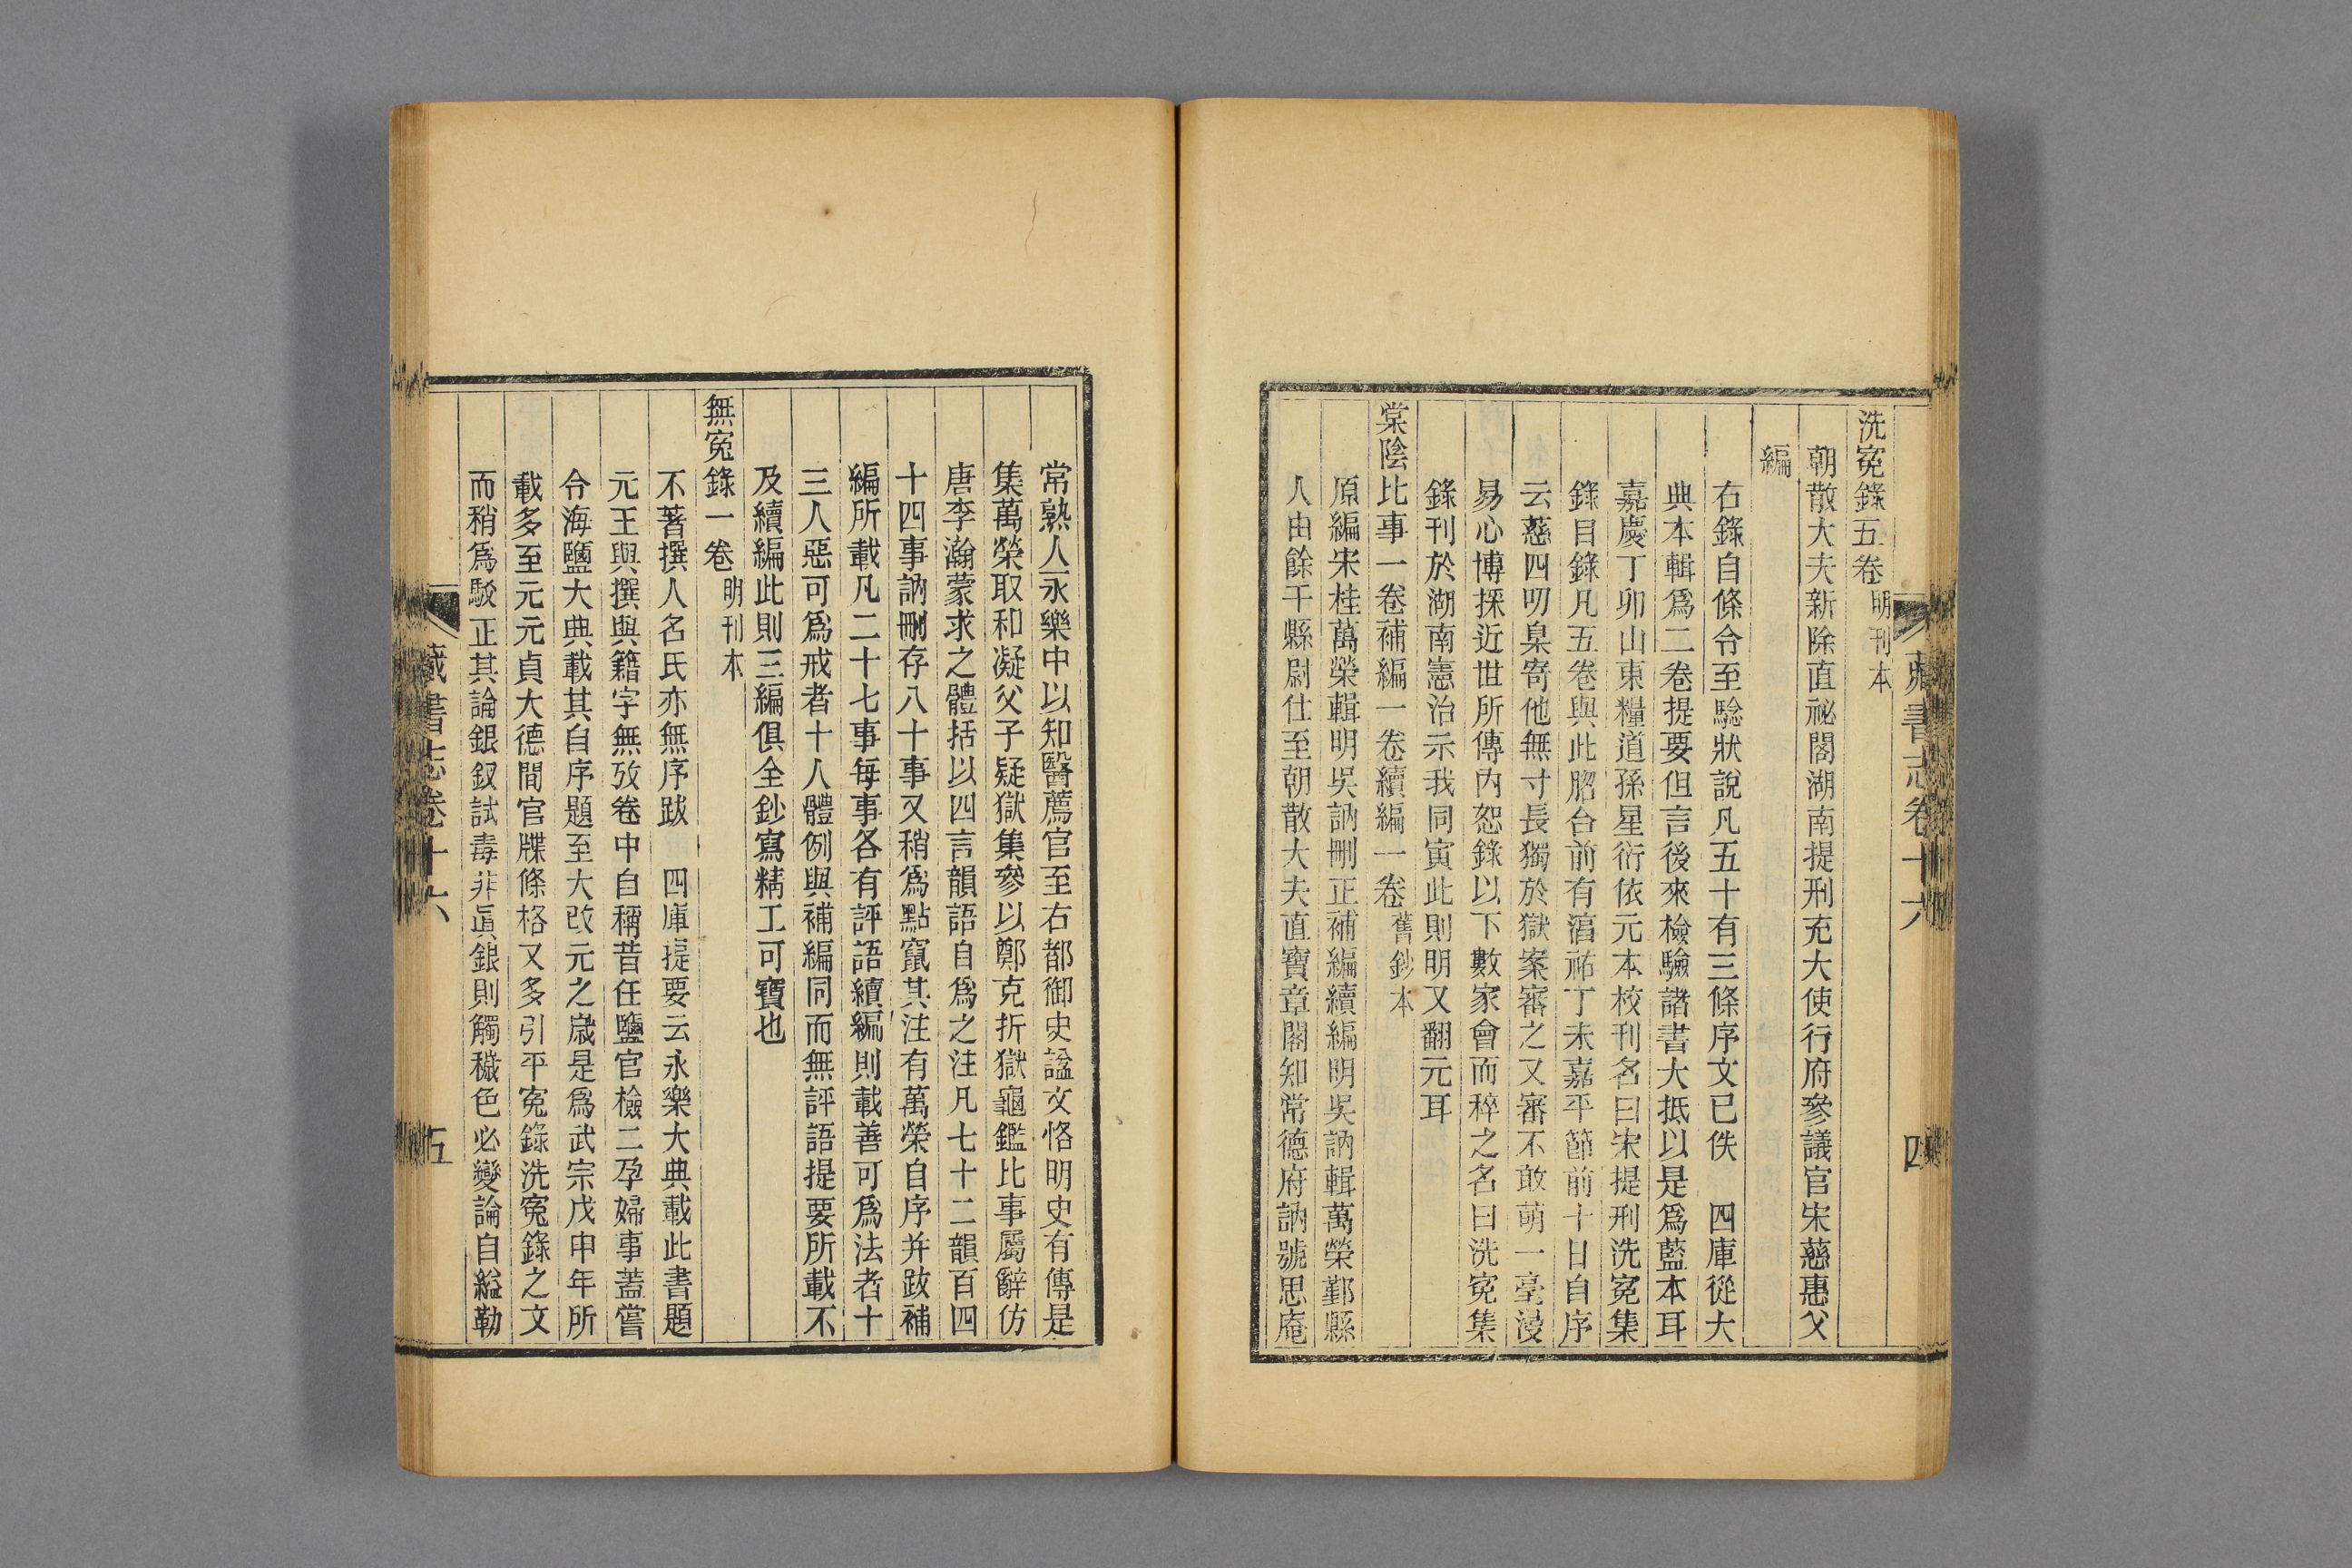 洗寃錄五卷 明刊本
朝散大夫新除直祕閣湖南提刑充大使行府參議官宋慈惠父
編
右錄自條令至驗狀說凡五十有三條序文已佚 四庫從大
典本輯爲二卷提要但言後來檢驗諸書大抵以是爲藍本耳
嘉慶丁卯山東糧道孫星衍依元本校刊名曰宋提刑洗寃集
錄目錄凡五卷與此脗合前有湻祐丁未嘉平節前十日自序
云慈四叨臬寄他無寸長獨於獄案審之又審不敢萌一毫浸
易心博採近世所傳內恕錄以下數家會而稡之名曰洗寃集
錄刊於湖南憲治示我同寅此則明又翻元耳
棠陰比事一卷補編一卷續編一卷 舊鈔本
原編宋桂萬榮輯明吳訥刪正補編續編明吳訥輯萬榮鄞縣
人由餘干縣尉仕至朝散大夫直寶章閣知常德府訥號思庵
藏書志卷十六 四
常熟人永樂中以知醫薦官至右都御史諡文恪明史有傳是
集萬榮取和凝父子疑獄集參以鄭克折獄龜鑑比事屬辭仿
唐李瀚蒙求之體括以四言韻語自爲之注凡七十二韻百四
十四事訥刪存八十事又稍爲點竄其注有萬榮自序并跋補
編所載凡二十七事每事各有評語續編則載善可爲法者十
三人惡可爲戒者十人體例與補編同而無評語提要所載不
及續編此則三編俱全鈔寫精工可寶也
無寃錄一卷 明刊本
不著撰人名氏亦無序跋 四庫提要云永樂大典載此書題
元王與撰與籍字無攷卷中自稱昔任鹽官檢二孕婦事蓋嘗
令海鹽大典載其自序題至大改元之歲是爲武宗戊申年所
載多至元元貞大德間官牒條格又多引平寃錄洗寃錄之文
而稍爲駁正其論銀釵試毒非眞銀則觸穢色必變論自縊勒
藏書志卷十六 五